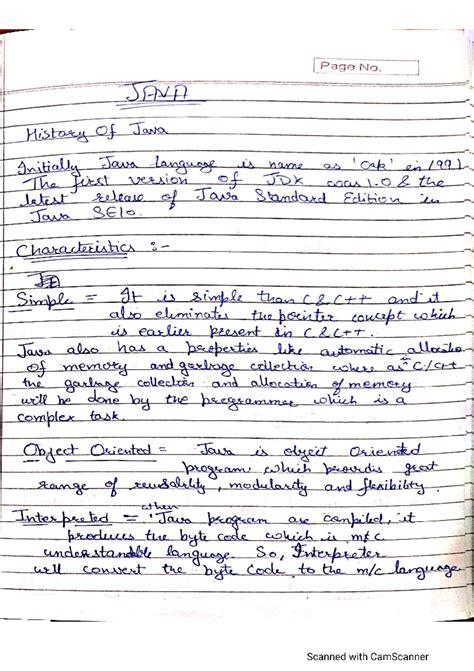 Page No.
JAVA
History Of Java
Initially Java language is name as 'Oak' in 1991
The first version of JDK was 1.0 & the
latest release of Java Standard Edition is
Java SE10.
Characteristics :-
Simple = It is simple than C & C++ and it
also eliminates the pointer concept which
is earlier present in C & C++.
Java also has a properties like automatic allocation
of memory and garbage collection where as in C/C++
the garbage collection and allocation of memory
will be done by the programmer which is a
complex task.
Object Oriented = Java is object Oriented
program, which provids great
range of reusability, modularity and flexibility.
Interpreted = when Java program are compiled, it
produces the byte code which is m/c
understandble language. So, Interpreter
will convert the byte code to the m/c language
Scanned with CamScanner